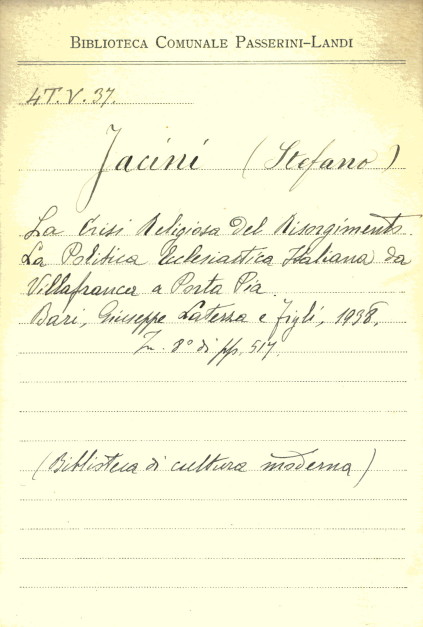 BIBLIOTECA COMUNALE PASSERINI-LANDI
4T.V.37.
Jacini (Stefano)
La Crisi Religiosa del Risorgimento.
La Politica Ecclesiastica Italiana da
Villafranca a Porta Pia.
Bari, Giuseppe Laterza e figli, 1938,
In 8° di pp. 517.
(Biblioteca di cultura moderna)